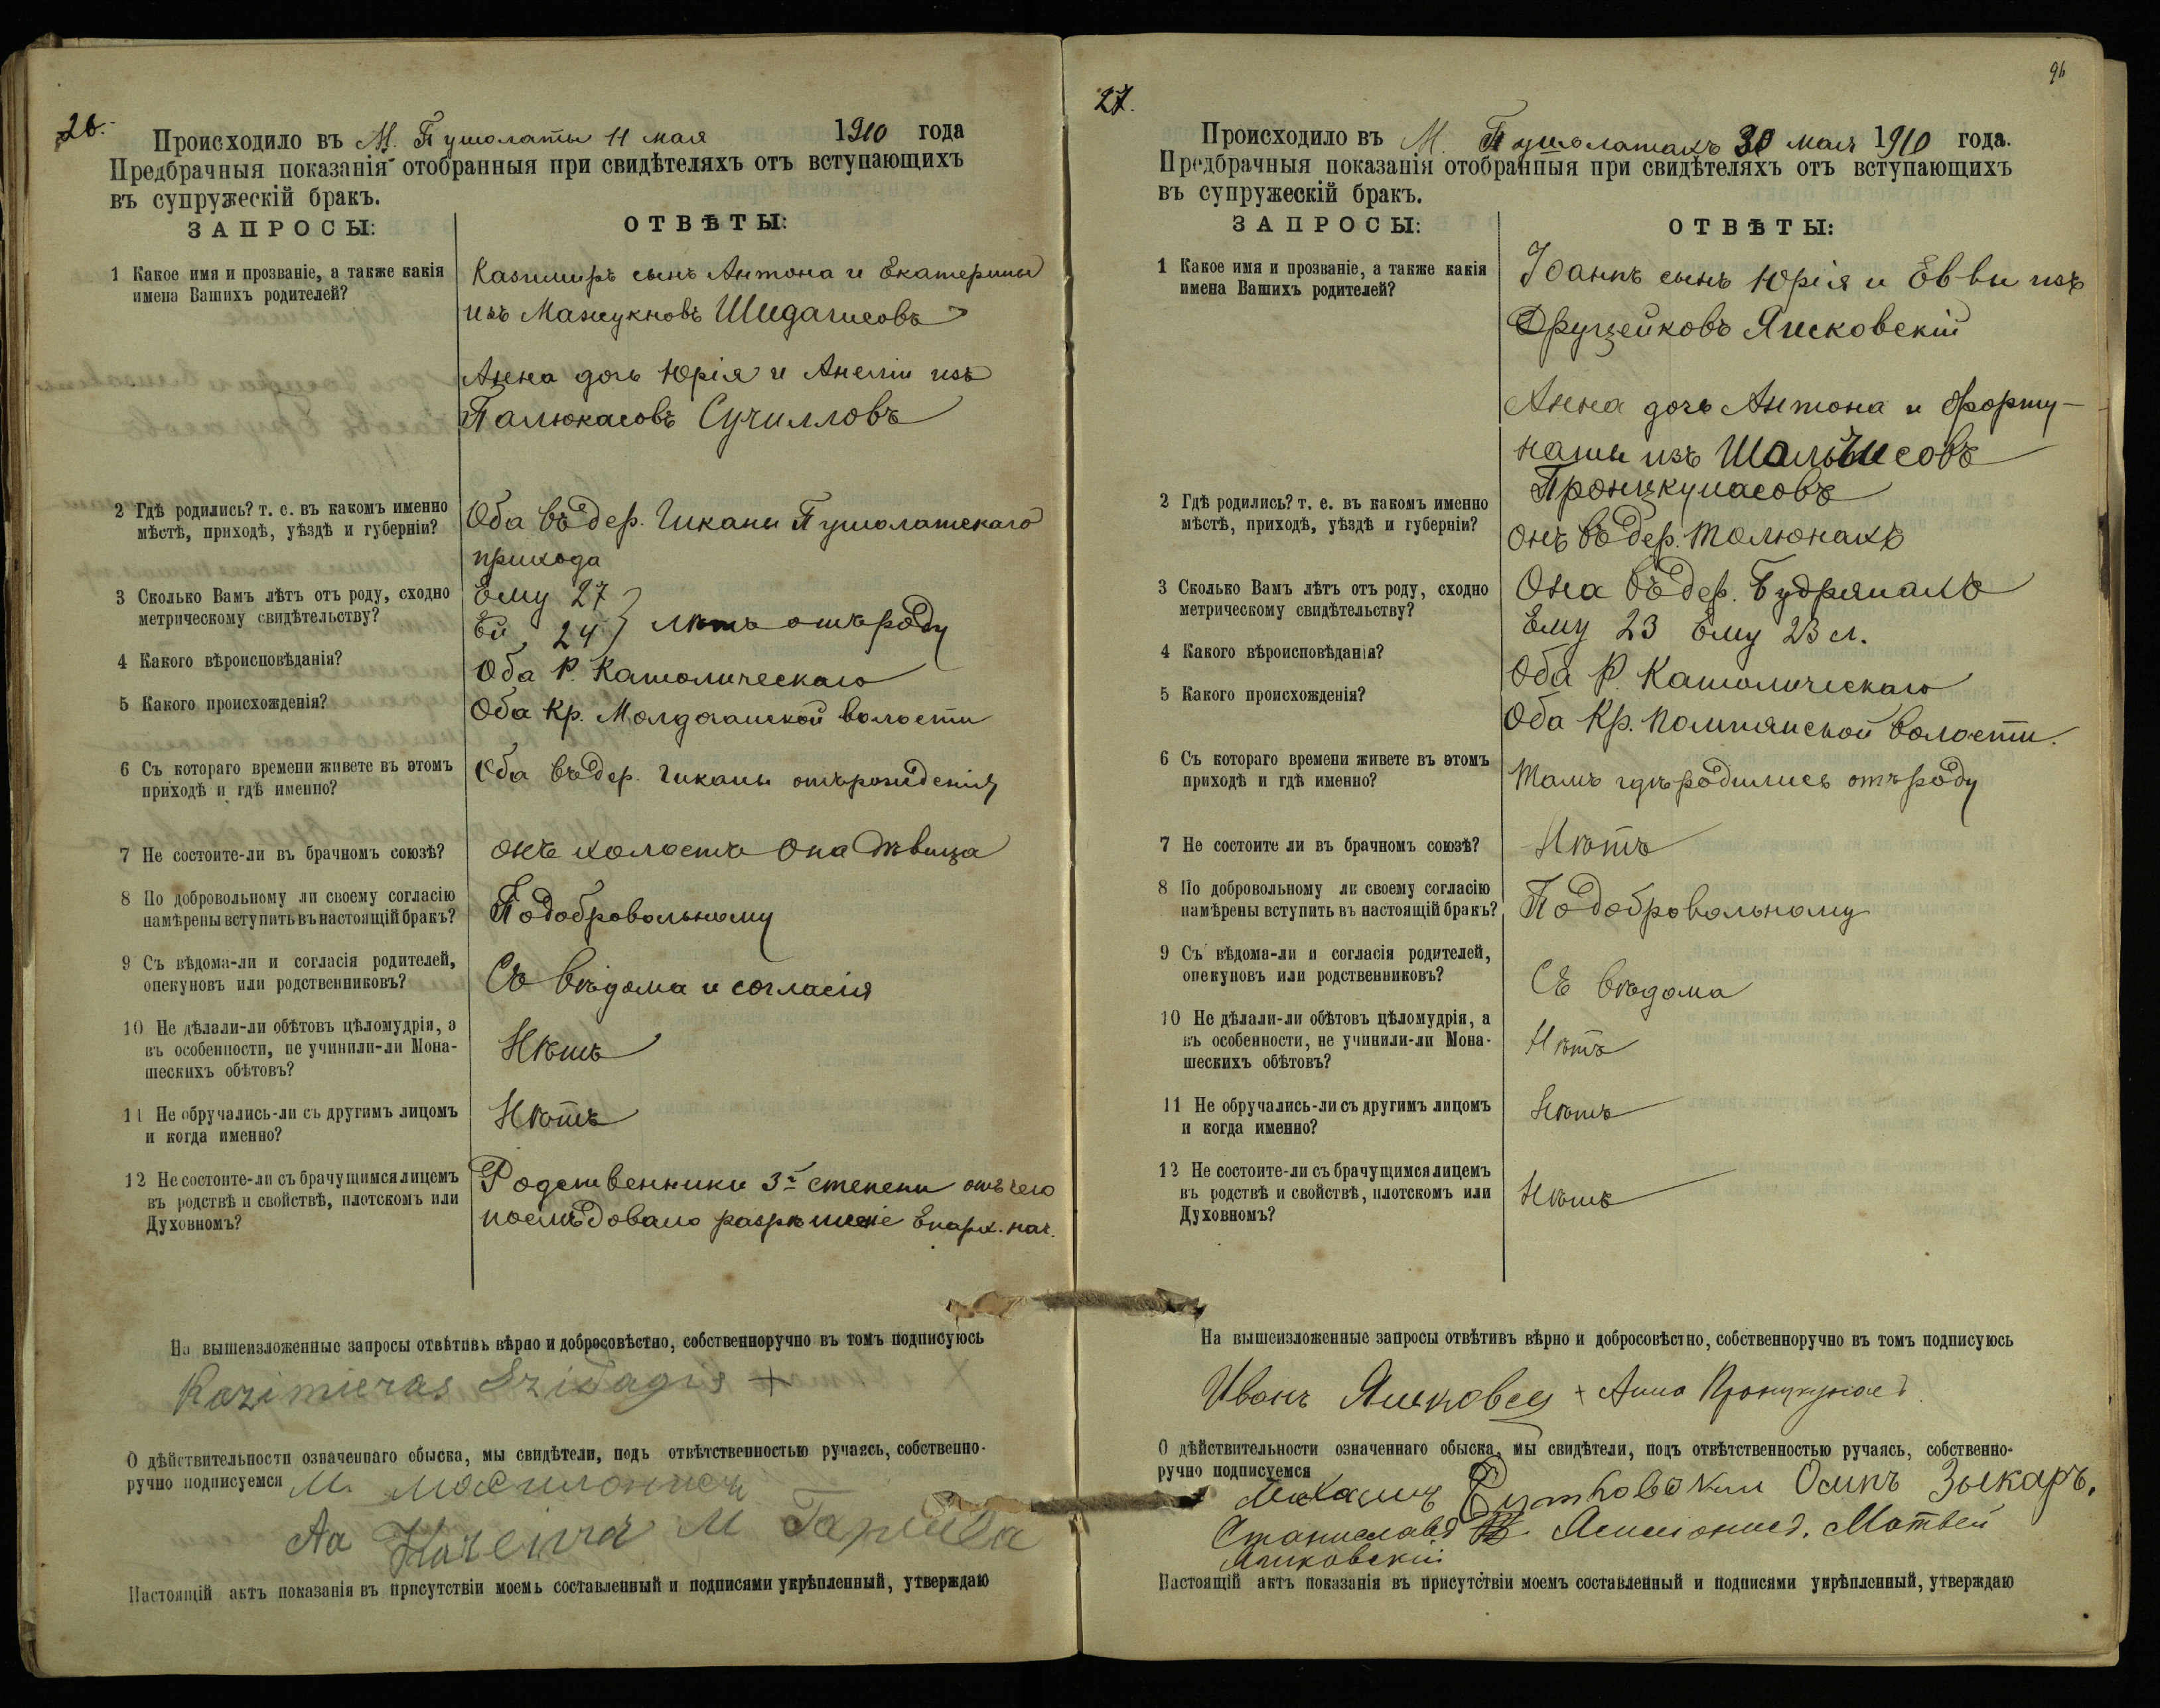 26.
Происходило въ М. Пушолаты 11 мая 1910 года
Предбрачныя показанія отобранныя при свидѣтеляхъ отъ вступающихъ
въ супружескій бракъ.
ЗАПРОСЫ:
ОТВѢТЫ:
1 Какое имя и прозваніе, а также какія
имена Вашихъ родителей?
Казимиръ сынъ Антона и Екатерины
изъ Мажукновъ Шидагисовъ
Анна дочь Юрія и Анеліи изъ
Палюкасовъ Сучилловъ
2 Гдѣ родились? т. е. въ какомъ именно
мѣстѣ, приходѣ, уѣздѣ и губерніи?
Оба въ дер. Чиканы Пушолатскаго
прихода
3 Сколько Вамъ лѣтъ отъ роду, сходно
метрическому свидѣтельству?
Ему 27
Ей 24 } лѣтъ отъ роду
4 Какого вѣроисповѣданія?
Оба Р. Католическаго
5 Какого происхожденія?
Оба Кр. волости
6 Съ котораго времени живете въ этомъ
приходѣ и гдѣ именно?
Оба въ дер. Чиканы отъ рожденія
7 Не состоите-ли въ брачномъ союзѣ?
онъ холостъ она дѣвица
8 По добровольному ли своему согласію
намѣрены вступить въ настоящій бракъ?
По добровольному
9 Съ вѣдома-ли и согласія родителей,
опекуновъ или родственниковъ?
Съ вѣдома и согласія
10 Не дѣлали-ли обѣтовъ цѣломудрія, а
въ особенности, не учинили-ли Мона-
шескихъ обѣтовъ?
Нѣтъ
11 Не обручались-ли съ другимъ лицомъ
и когда именно?
Нѣтъ
12 Не состоите-ли съ брачущимся лицемъ
въ родствѣ и свойствѣ, плотскомъ или
Духовномъ?
Родственники 3й степени отъ чего
послѣдовало разрѣшеніе Епарх. нач.
На вышеизложенные запросы отвѣтивъ вѣрно и добросовѣстно, собственноручно въ томъ подписуюсь
Kazimieras Szidagis +
О дѣйствительности означеннаго обыска, мы свидѣтели, подъ отвѣтственностью ручаясь, собственно-
ручно подписуемся М.
М
Настоящій актъ показанія въ присутствіи моемъ составленный и подписями укрѣпленный, утверждаю
96
27.
Происходило въ М. Пушолатахъ 30 мая 1910 года.
Предбрачныя показанія отобранныя при свидѣтеляхъ отъ вступающихъ
въ супружескій бракъ.
ЗАПРОСЫ:
ОТВѢТЫ:
1 Какое имя и прозваніе, а также какія
имена Вашихъ родителей?
Іоаннъ сынъ Юрія и Еввы изъ
Друцейковъ Яшковскій
Анна дочь Антона и Форту-
наты изъ Шальчисовъ
Пронцкунасовъ
2 Гдѣ родились? т. е. въ какомъ именно
мѣстѣ, приходѣ, уѣздѣ и губерніи?
онъ въ дер. Толюнахъ
Она въ дер.
3 Сколько Вамъ лѣтъ отъ роду, сходно
метрическому свидѣтельству?
Ему 23 Ему 23 л.
4 Какого вѣроисповѣданія?
Оба Р. Католическаго
5 Какого происхожденія?
Оба Кр. Помпянской волости.
6 Съ котораго времени живете въ этомъ
приходѣ и гдѣ именно?
Тамъ гдѣ родились отъ роду
7 Не состоите ли въ брачномъ союзѣ?
Нѣтъ
8 По добровольному ли своему согласію
намѣрены вступить въ настоящій бракъ?
По добровольному
9 Съ вѣдома-ли и согласія родителей,
опекуновъ или родственниковъ?
Съ вѣдома
10 Не дѣлали-ли обѣтовъ цѣломудрія, а
въ особенности, не учинили-ли Мона-
шескихъ обѣтовъ?
Нѣтъ
11 Не обручались-ли съ другимъ лицомъ
и когда именно?
Нѣтъ
12 Не состоите-ли съ брачущимся лицемъ
въ родствѣ и свойствѣ, плотскомъ или
Духовномъ?
Нѣтъ
На вышеизложенные запросы отвѣтивъ вѣрно и добросовѣстно, собственноручно въ томъ подписуюсь
Иванъ + Анна
О дѣйствительности означеннаго обыска, мы свидѣтели, подъ отвѣтственностью ручаясь, собственно-
ручно подписуемся
Осипъ Зыкаръ.
Матвей
Яшковскій
Настоящій актъ показанія въ присутствіи моемъ составленный и подписями укрѣпленный, утверждаю